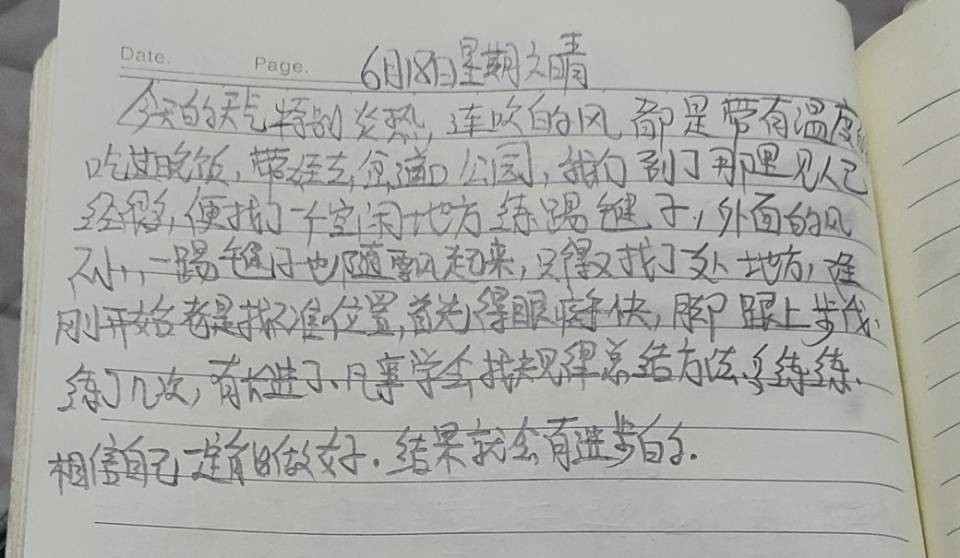 Date. Page. 6月18日星期六晴
今天的天气特别炎热,连吹的风都是带有温度
吃过晚饭,带侄去公园,我们到了那里见人已
经很多,便找了一个空闲地方练踢毽子,外面的风
不小,一踢毽子也随风起来,只得又找了处地方,在
刚开始老是找不准位置,首先得眼疾手快,脚跟上步伐,
练了几次,有长进了.凡事学会找规律总结方法.多练练.
相信自己一定能做好.结果就会有进步的.